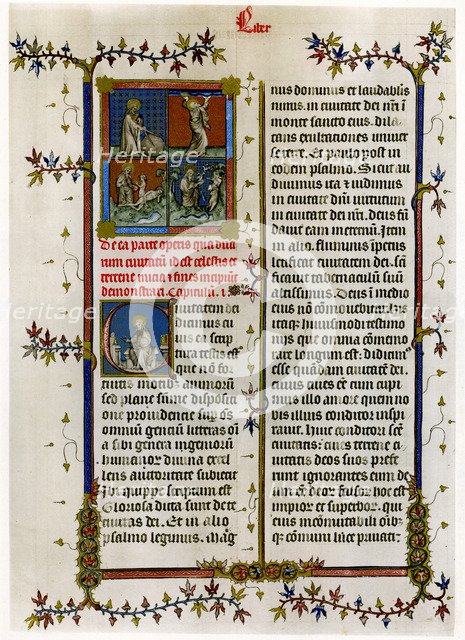 Liber
De ea parte operis qua duarum
civitatum id est celestis et
terrene inicia & fines incipiunt
demonstrari. Capitulum .i.
Civitatem dei
dicimus cui
us ea scrip
tura testis est
que non for
tuitis motibus animorum
sed plane sume dispositi
one providencie super omnes
omnium gencium litteras omnia
sibi genera ingeniorum
humanorum divina excel
lens auctoritate subiecit
Ibi quippe scriptum est
Gloriosa dicta sunt de te
civitas dei. Et in alio
psalmo legimus. Mag
nus dominus et laudabilis
nimis. in civitate dei nostri i
monte sancto eius. dila
tans exultationes univer
se terre. Et paulo post in
eodem psalmo. Sicut au
divimus ita & vidimus
in civitate domini virtutum
in civitate dei nostri. deus fun
davit eam in eternum. Item
in alio. fluminis impetus
letificat civitatem dei. sancti
ficavit tabernaculum suum
altissimus. Deus in medio
eius non commovebitur. hiis
et huiusmodi testimoniis
que omnia commemorare
longum est: didicimus
esse quandam civitatem dei:
cuius cives esse cupi
mus illo amore quem no
bis illius conditor inspi
ravit. Huic conditori sancte
civitatis: cives terrene ci
vitatis deos suos prefe
runt ignorantes eum de
um esse deorum
impiorum et superborum. qui
eius incommutabili omnibus
que communi luce privati:
heritage
Heritage
Heritage
Heritage
Images
Images